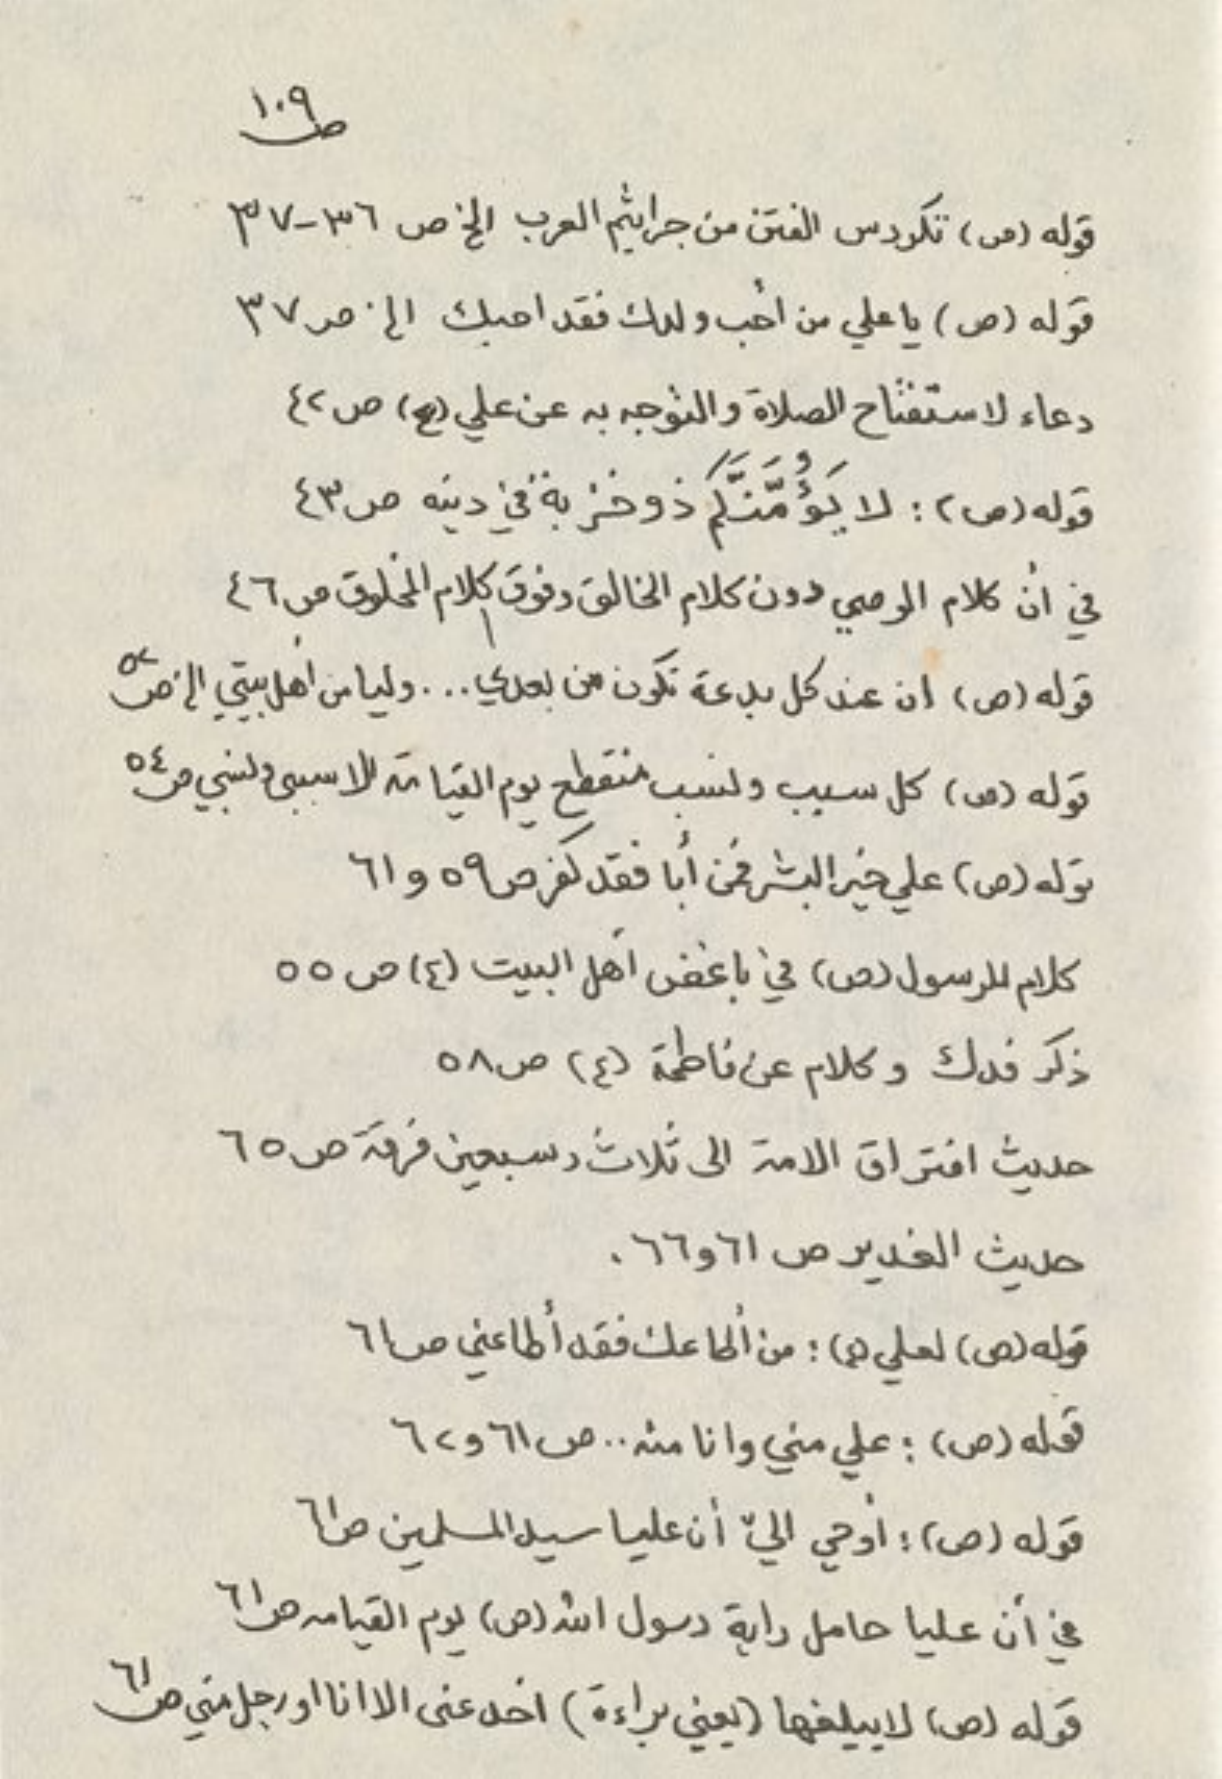 ص ١٠٩
قوله (ص) تكودس الفتن من جراثيم العرب الخ ص ٣٦-٣٧
قوله (ص) يا علي من أحب ولدك فقد احبك الخ ص ٣٧
دعاء لاستفتاح الصلاة والتوجه به عن علي (ع) ص ٤٢
قوله (ص) : لا يَؤُمَّنَّكم ذو خزبة في دينه ص ٤٣
في أن كلام الوصي دون كلام الخالق وفوق كلام المخلوق ص ٤٦
قوله (ص) ان عند كل بدعة تكون من بعدي ... وليا من أهل بيتي الخ ص ٥٢
قوله (ص) كل سبب ونسب منقطع يوم القيامة الا سببي ونسبي ص ٥٤
قوله (ص) علي خير البشر فمن أبا فقد كفر ص ٥٩ و ٦١
كلام للرسول (ص) في باغض أهل البيت (ع) ص ٥٥
ذكر فدك وكلام عن فاطمة (ع) ص ٥٨
حديث افتراق الامة الى ثلاث وسبعين فرقة ص ٦٥
حديث الغدير ص ٦١ و ٦٦ .
قوله (ص) لعلي (ع) : من أطاعك فقد أطاعني ص ٦١
قوله (ص) : علي مني وانا منه .. ص ٦١ و ٦٢
قوله (ص) : أوحي اليّ أن عليا سيد المسلمين ص ٦١
في أن عليا حامل راية رسول الله (ص) يوم القيامه ص ٦١
قوله (ص) لا يبلغها (يعني براءة) احد عني الا انا او رجل مني ص ٦١